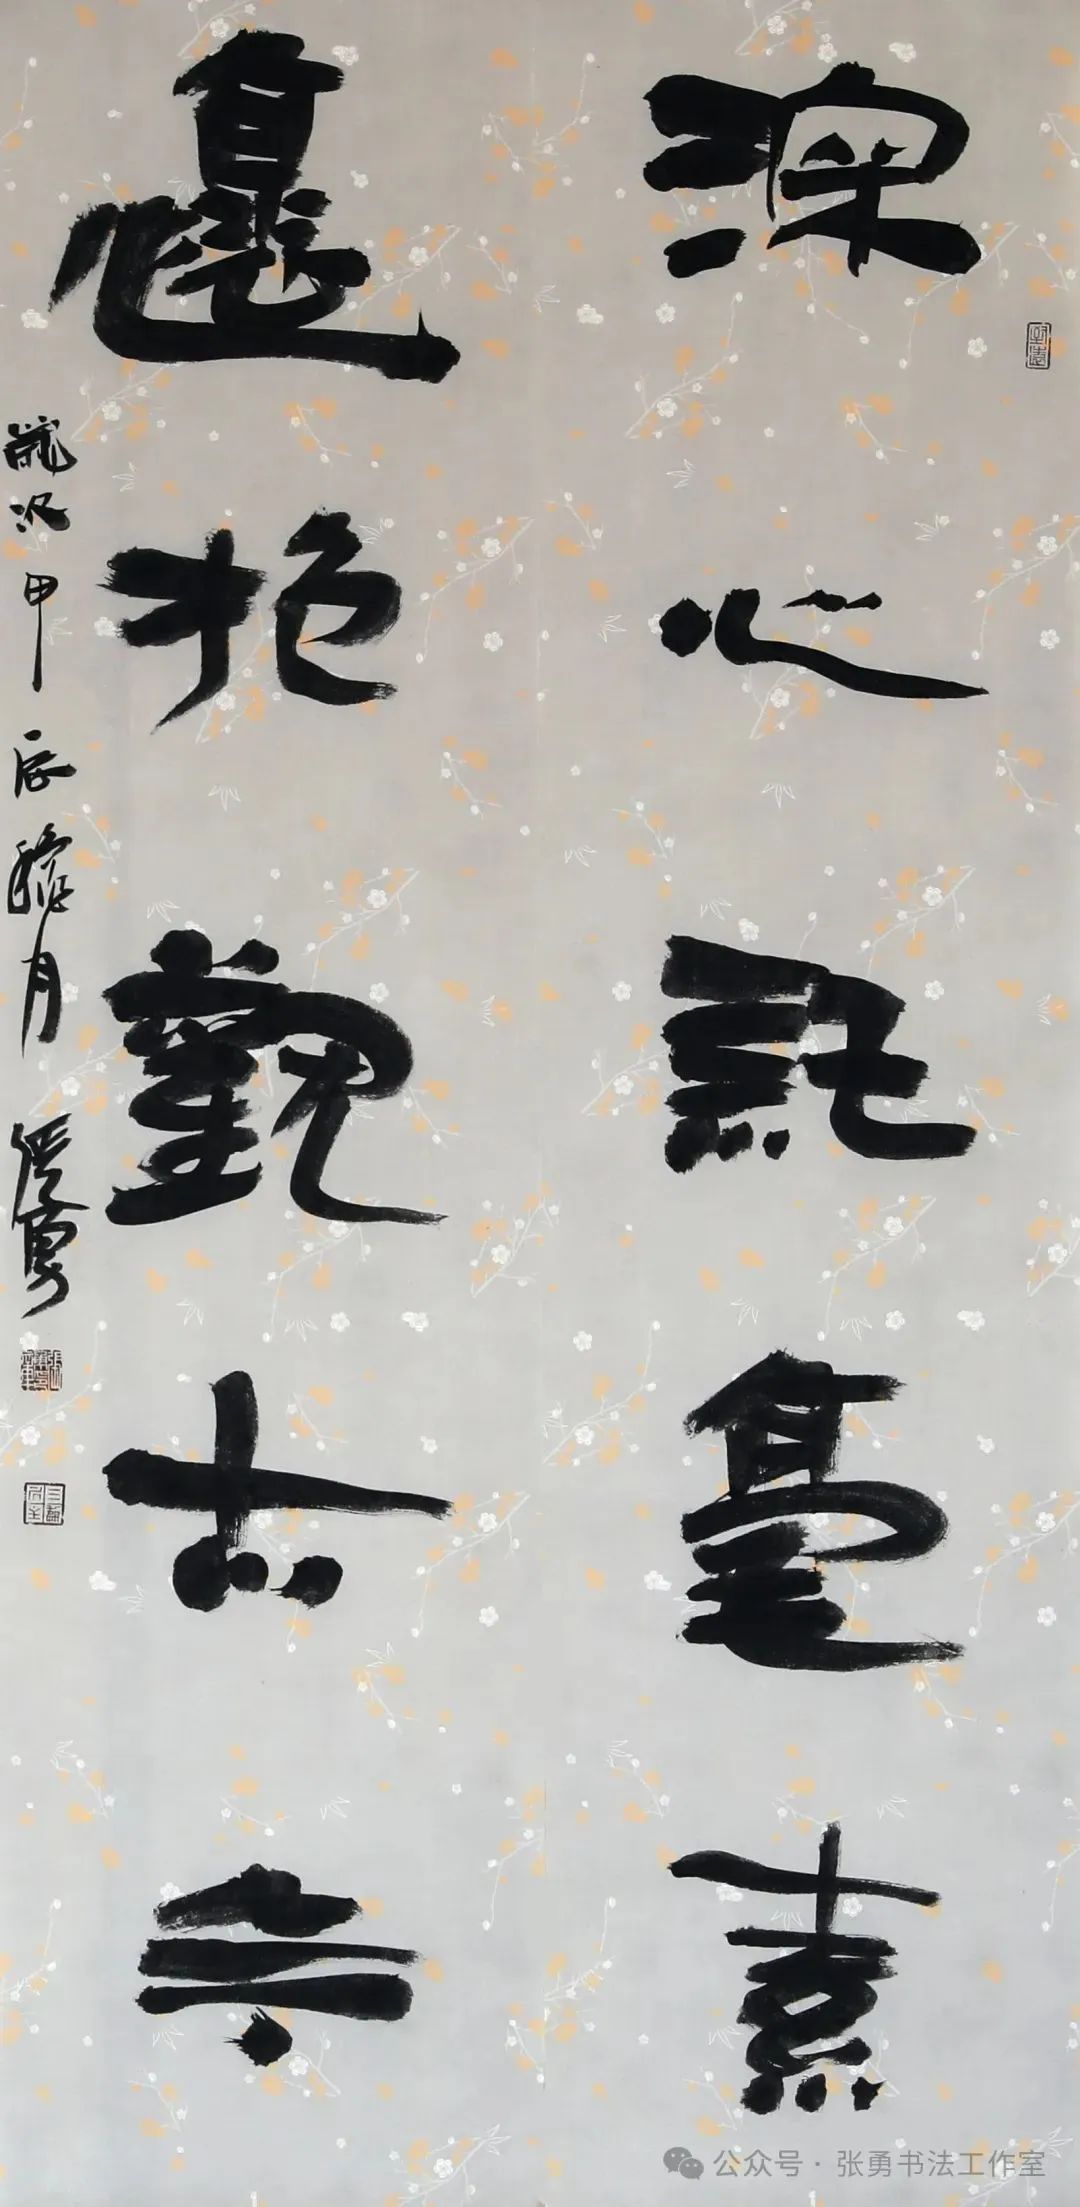 深心託毫素
遠抱觀古今
歲次甲辰臘月張勇
公众号·张勇书法工作室